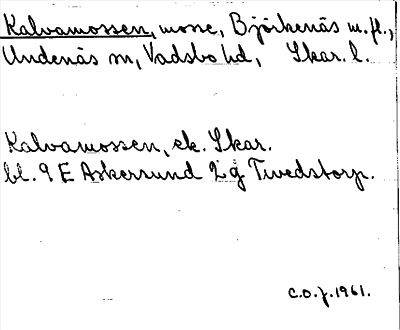 Kalvamossen, mosse, Björkenäs m.fl.,
Undenäs sn, Vadsbo hd, Skar. l.
Kalvamossen, ek. Skar.
bl. 9 E Askersund 2 g Tivedstorp.
C.O.J. 1961.